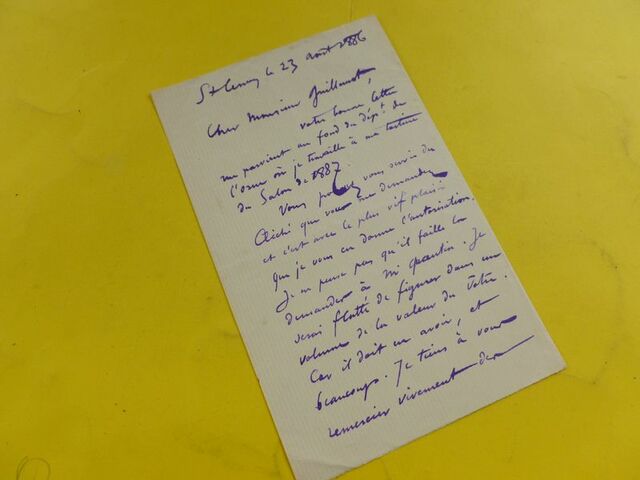 le 23 août 1886
Cher Monsieur Guillaumet,
votre bonne lettre
me parvient au fond du dépt de
l'orne où je travaille à ma tartine
du Salon de 1887.
Vous pouvez vous servir du
Cliché que vous me demandez
et c'est avec le plus vif plaisir
que je vous en donne l'autorisation.
Je ne pense pas qu'il faille la
demander à Mr Quantin. Je
serai flatté de figurer dans un
volume de la valeur du Vôtre.
Car il doit en avoir, et
beaucoup. Je tiens à vous
remercier vivement de